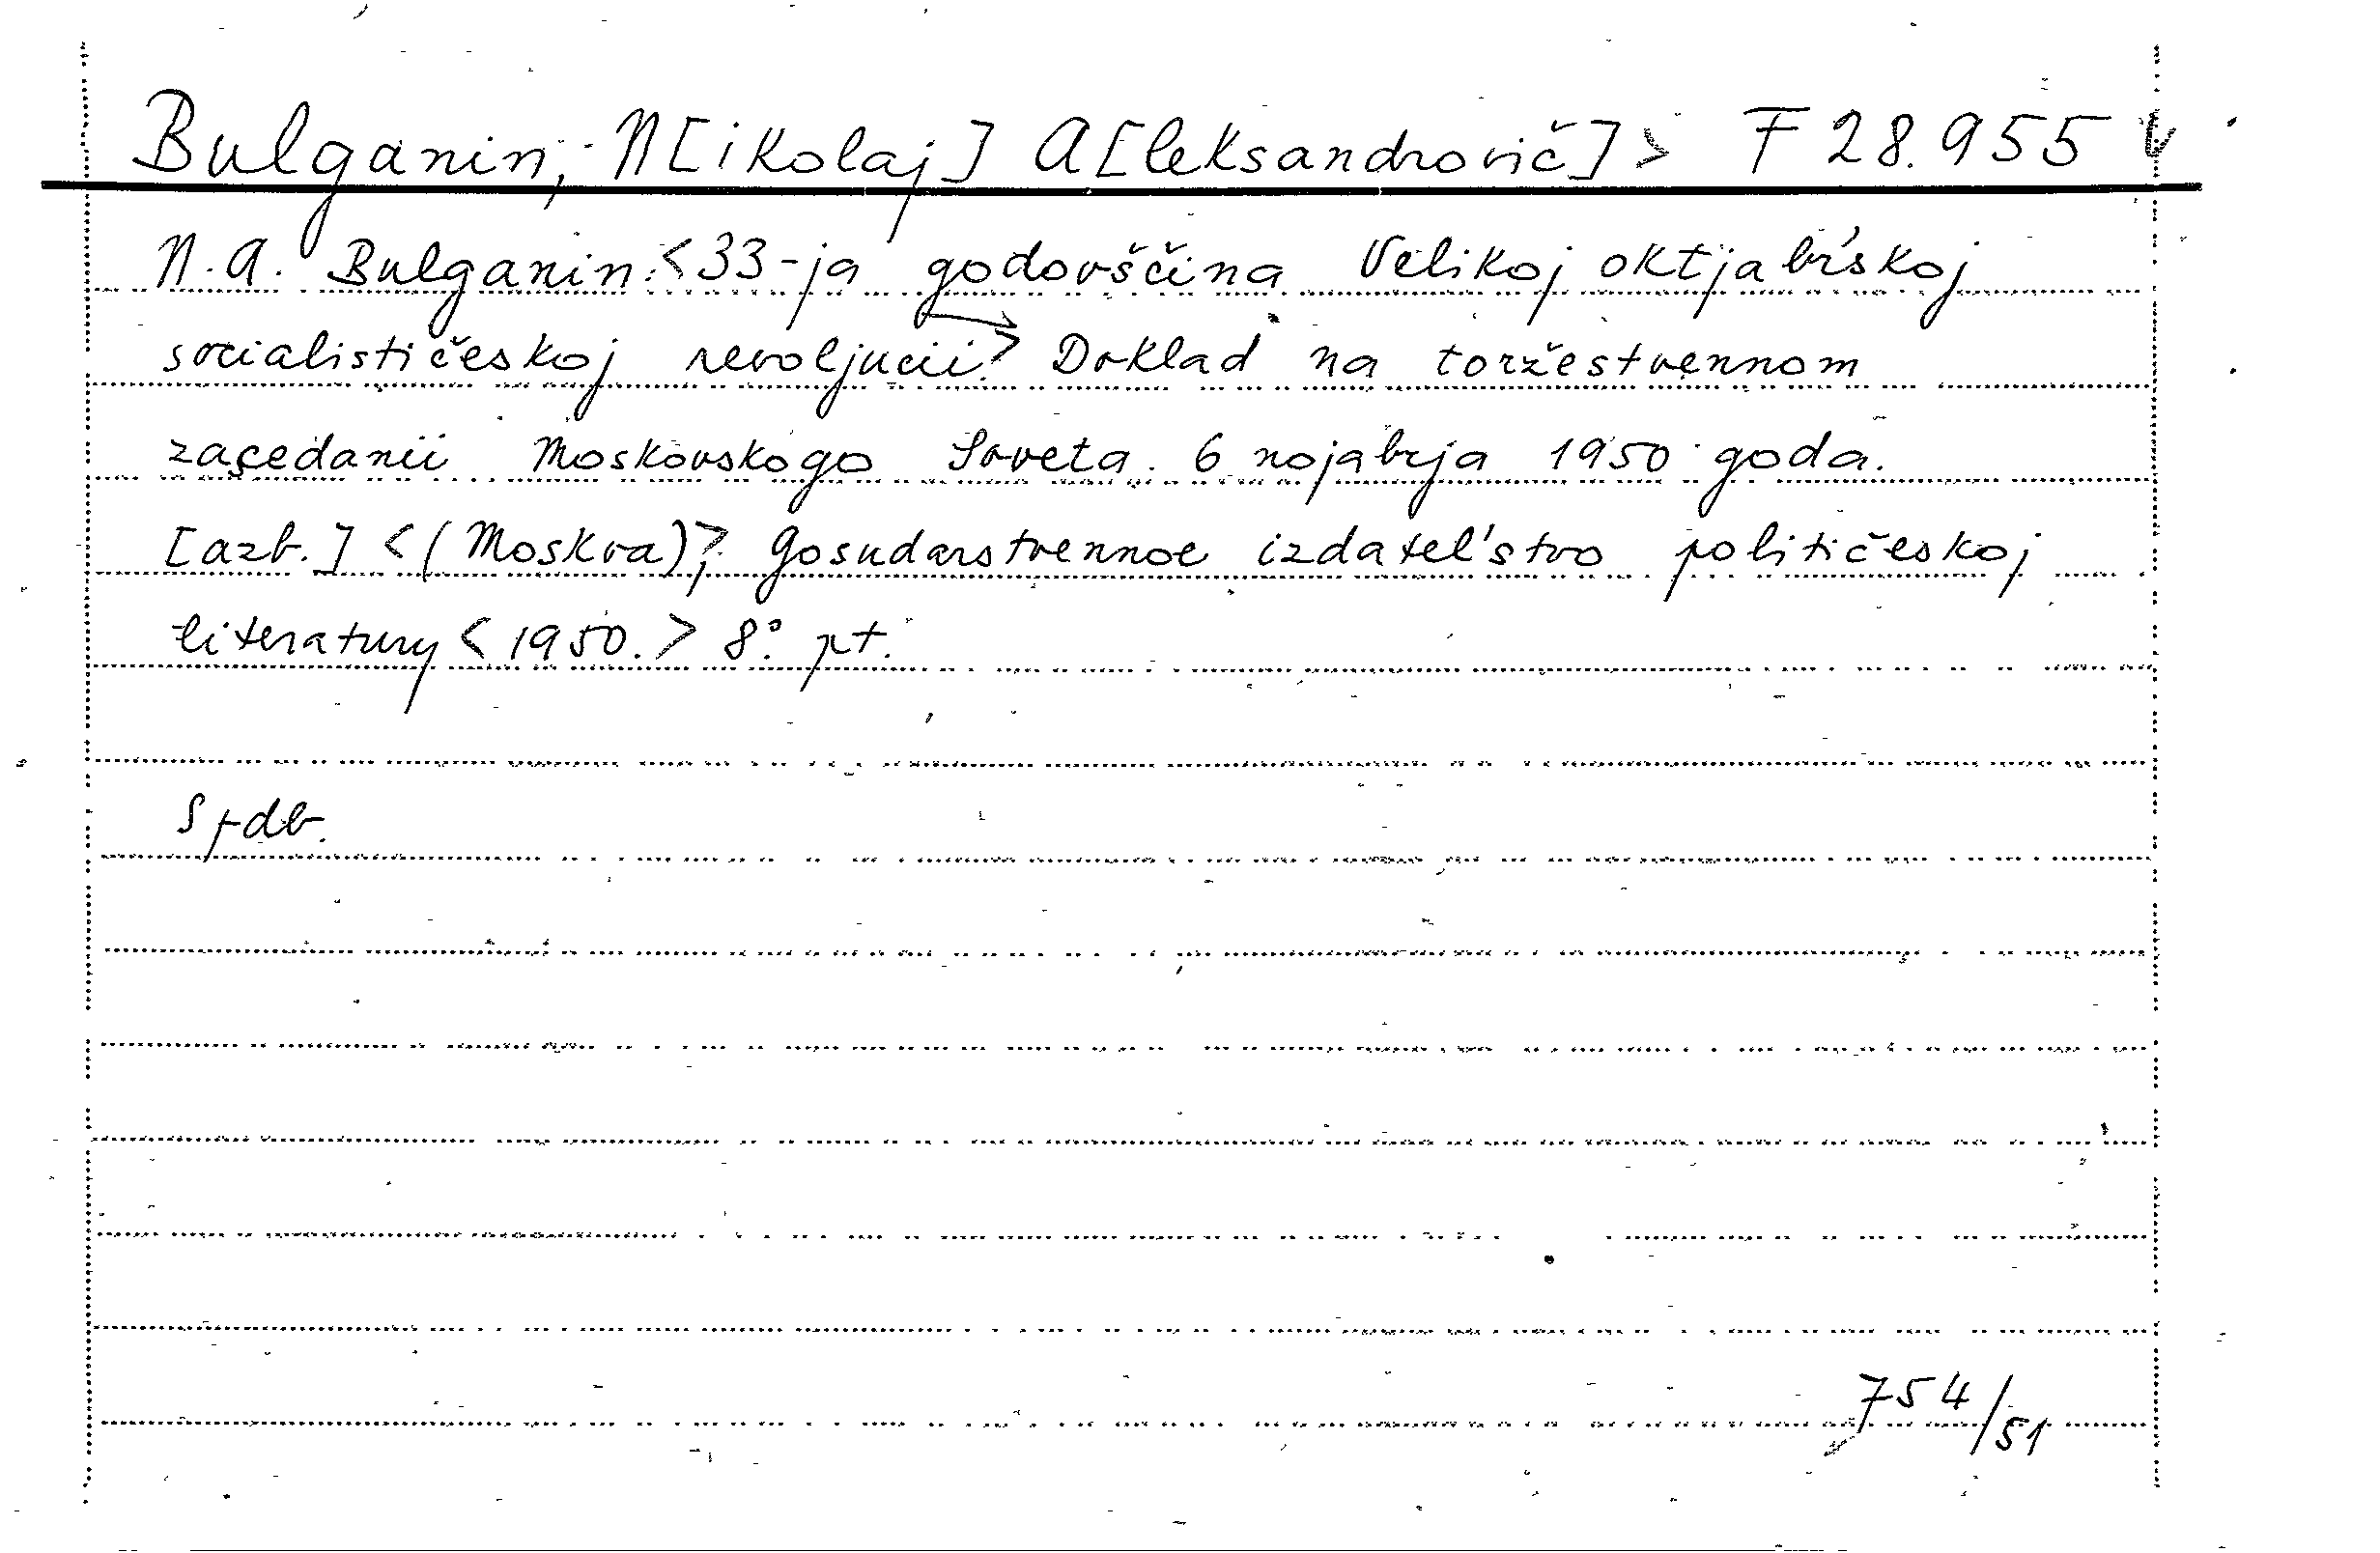 Bulganin, N[ikolaj] A[leksandrovič] > F 28.955
N. A. Bulganin: < 33-ja godovščina Velikoj oktjabŕskoj
socialističeskoj revoljucii > Doklad na toržestvennom
zacedanii Moskovskogo Soveta. 6 nojabrja 1950 goda.
[azb.] < (Moskva) >, Gosudarstvennoe izdatel'stvo političeskoj
literatury < 1950. > 8°. pt.
754/51